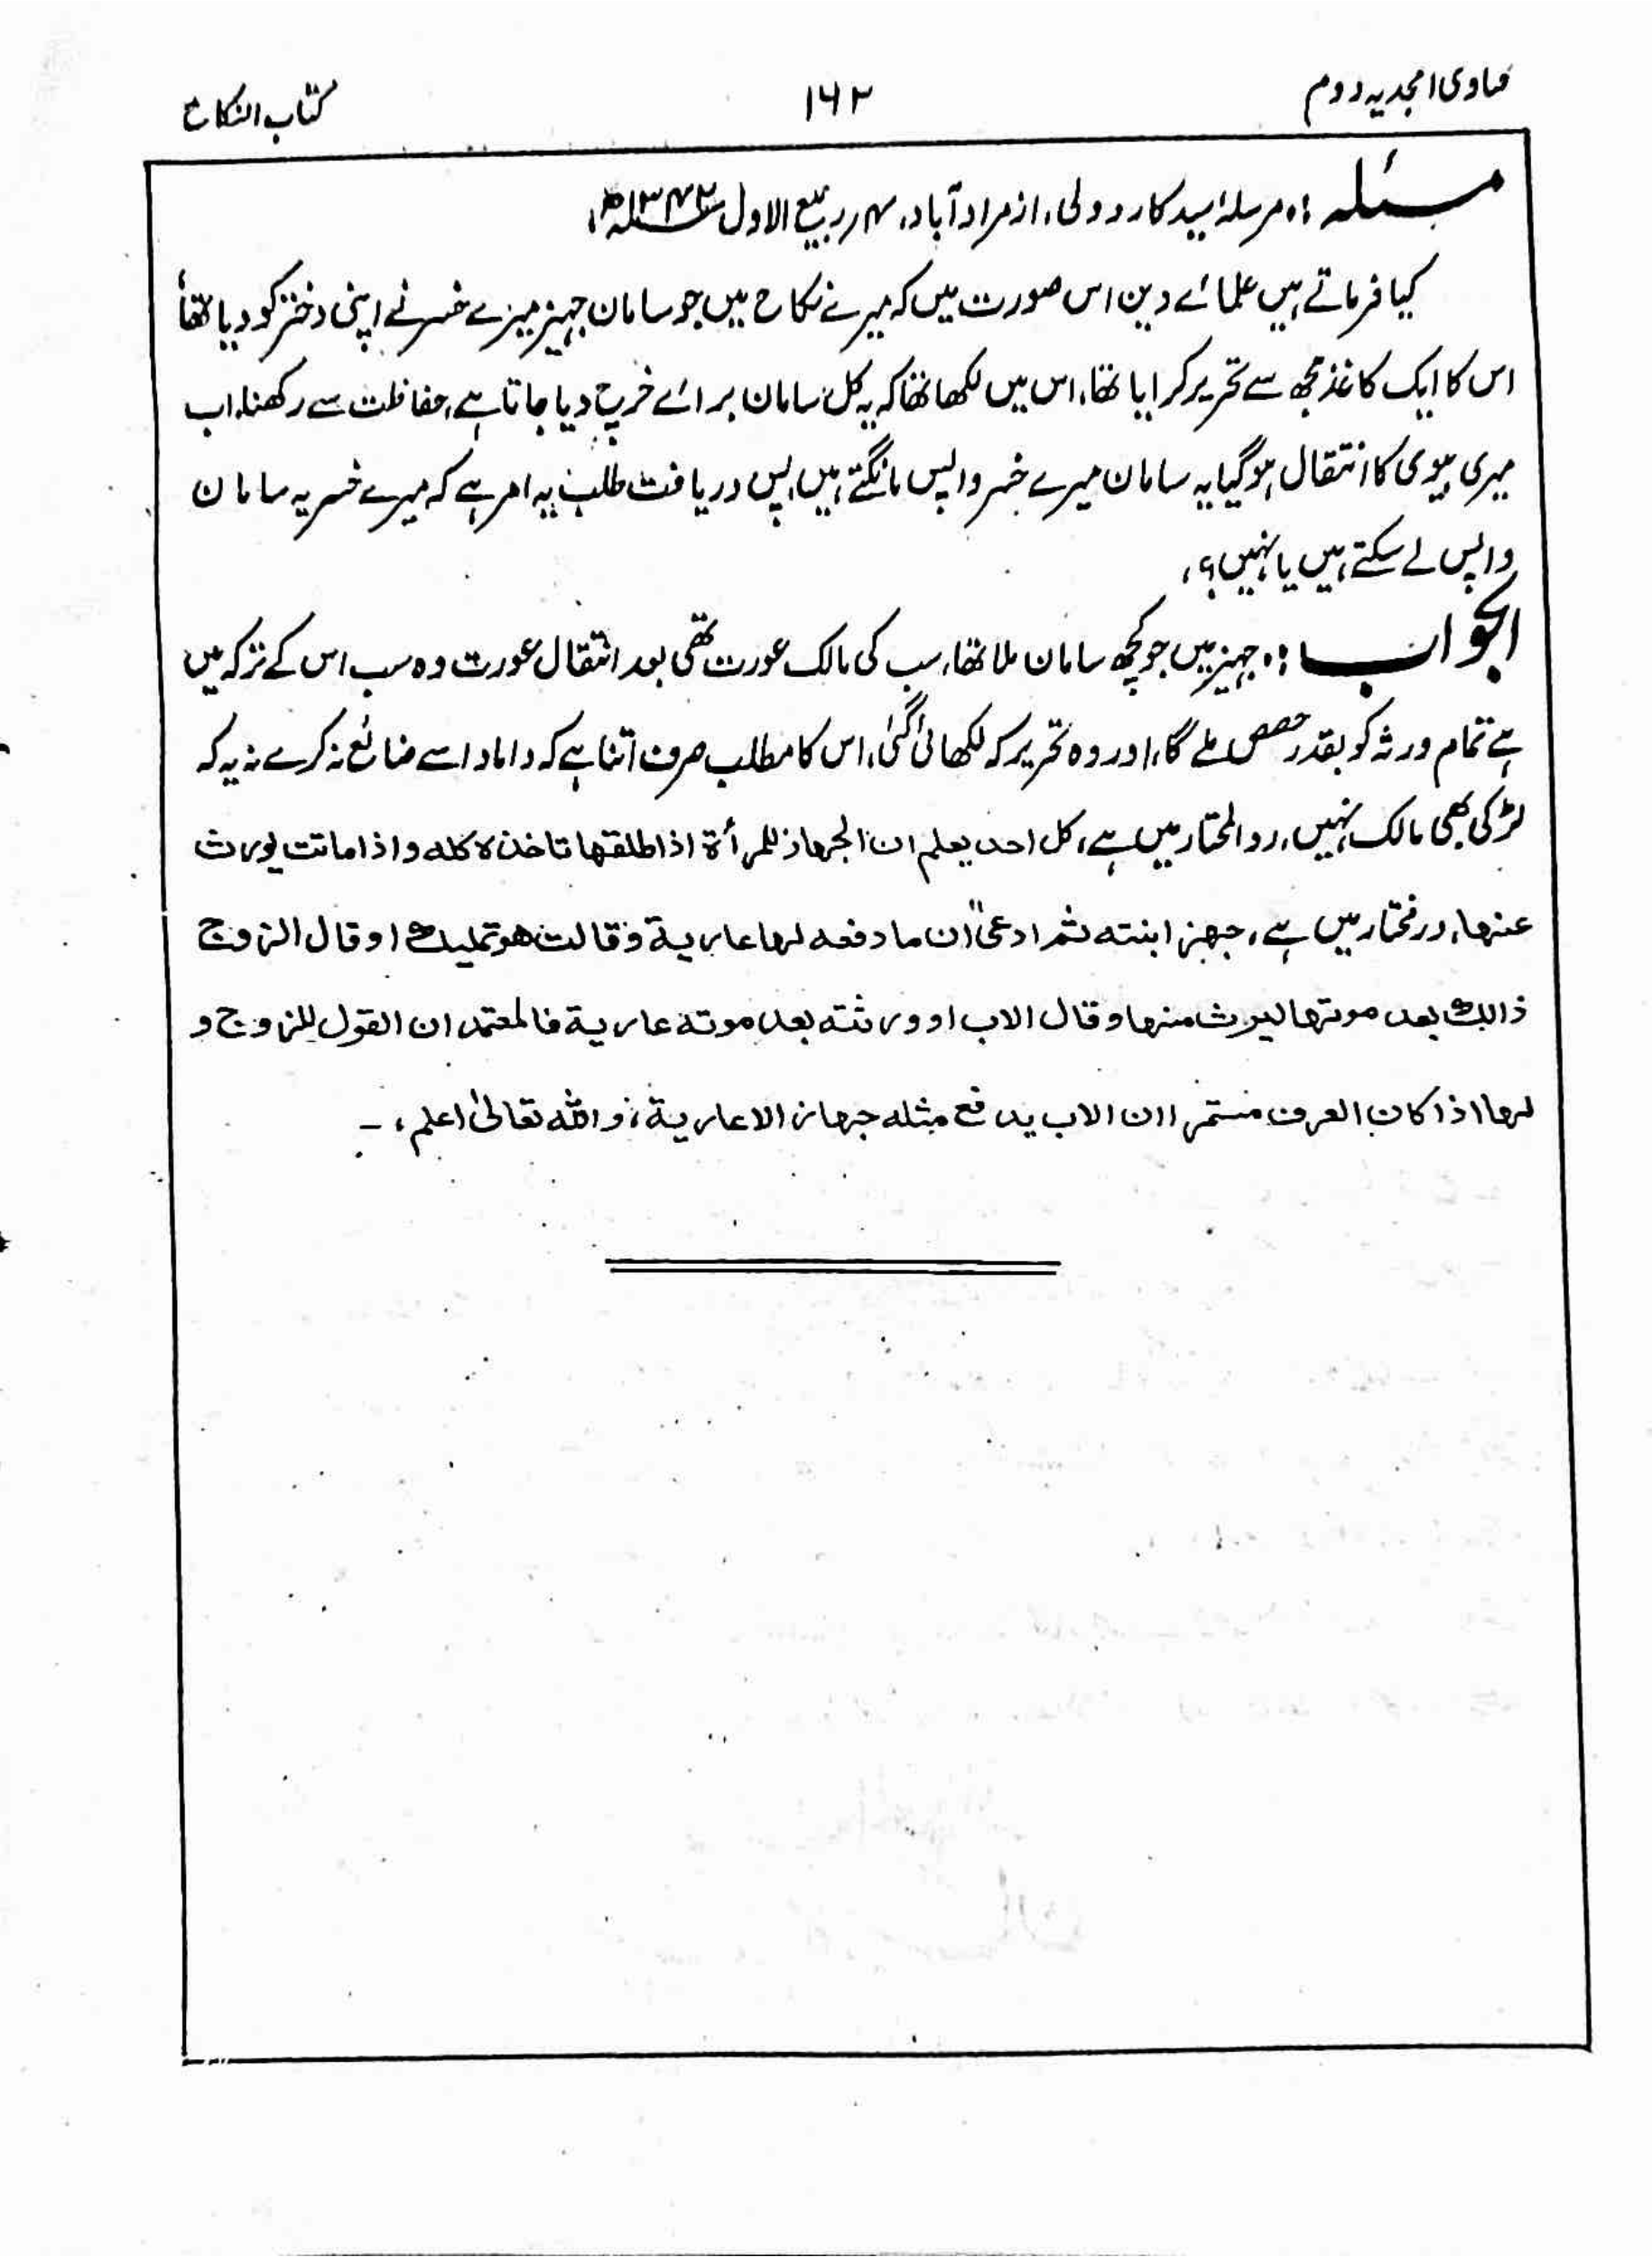 فتاوی امجدیہ دوم ۱۶۲ کتاب النکاح
مسئلہ :۔ مرسلۂ سید کار دولی، از مراد آباد، ۴؍ ربیع الاول ۱۳۴۲ھ،
کیا فرماتے ہیں علمائے دین اس صورت میں کہ میرے نکاح میں جو سامان جہیز میرے خسر نے اپنی دختر کو دیا تھا
اس کا ایک کاغذ مجھ سے تحریر کرایا تھا، اس میں لکھا تھا کہ یہ کل سامان برائے خرچ دیا جاتا ہے، حفاظت سے رکھنا، اب
میری بیوی کا انتقال ہوگیا یہ سامان میرے خسر واپس مانگتے ہیں، پس دریافت طلب یہ امر ہے کہ میرے خسر یہ سامان
واپس لے سکتے ہیں یا نہیں؟،
الجواب :۔ جہیز میں جو کچھ سامان ملا تھا، سب کی مالک عورت تھی بعد انتقال عورت وہ سب اس کے ترکہ میں
ہے تمام ورثہ کو بقدر حصص ملے گا، اور وہ تحریر کہ لکھائی گئی، اس کا مطلب صرف اتنا ہے کہ داماد اسے ضائع نہ کرے نہ یہ کہ
لڑکی بھی مالک نہیں، رد المحتار میں ہے، کل احد یعلم ان الجھاز للمرأۃ اذا طلقھا تاخذہ کلہ واذا ماتت یورث
عنھا، درمختار میں ہے، جھز ابنتہ ثم ادعی ان ما دفعہ لھا عاریۃ وقالت ھو تملیک او قال الزوج
ذالک بعد موتھا لیرث منھا وقال الاب او ورثتہ بعد موتہ عاریۃ فالمعتمد ان القول للزوج و
لھا اذا کان العرف مستمرا ان الاب یدفع مثلہ جھازا لا عاریۃ، واللہ تعالیٰ اعلم، ۔